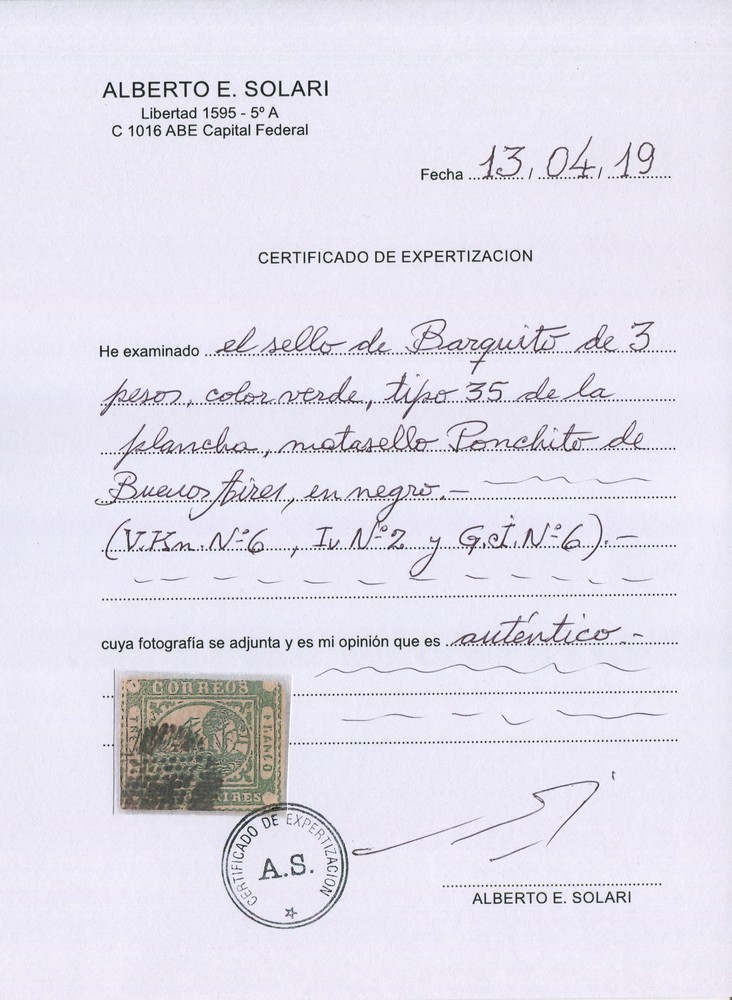 ALBERTO E. SOLARI
Libertad 1595 - 5º A
C 1016 ABE Capital Federal
Fecha 13 / 04 / 19
CERTIFICADO DE EXPERTIZACION
He examinado el sello de Barquito de 3
pesos, color verde, tipo 35 de la
plancha, matasello Ponchito de
Buenos Aires, en negro.-
(V.Kn. Nº 6, Iv. Nº 2 y G.J. Nº 6).-
cuya fotografía se adjunta y es mi opinión que es auténtico.-
CORREOS
FRANCO
AIRES
CERTIFICADO DE EXPERTIZACION
A.S.
ALBERTO E. SOLARI